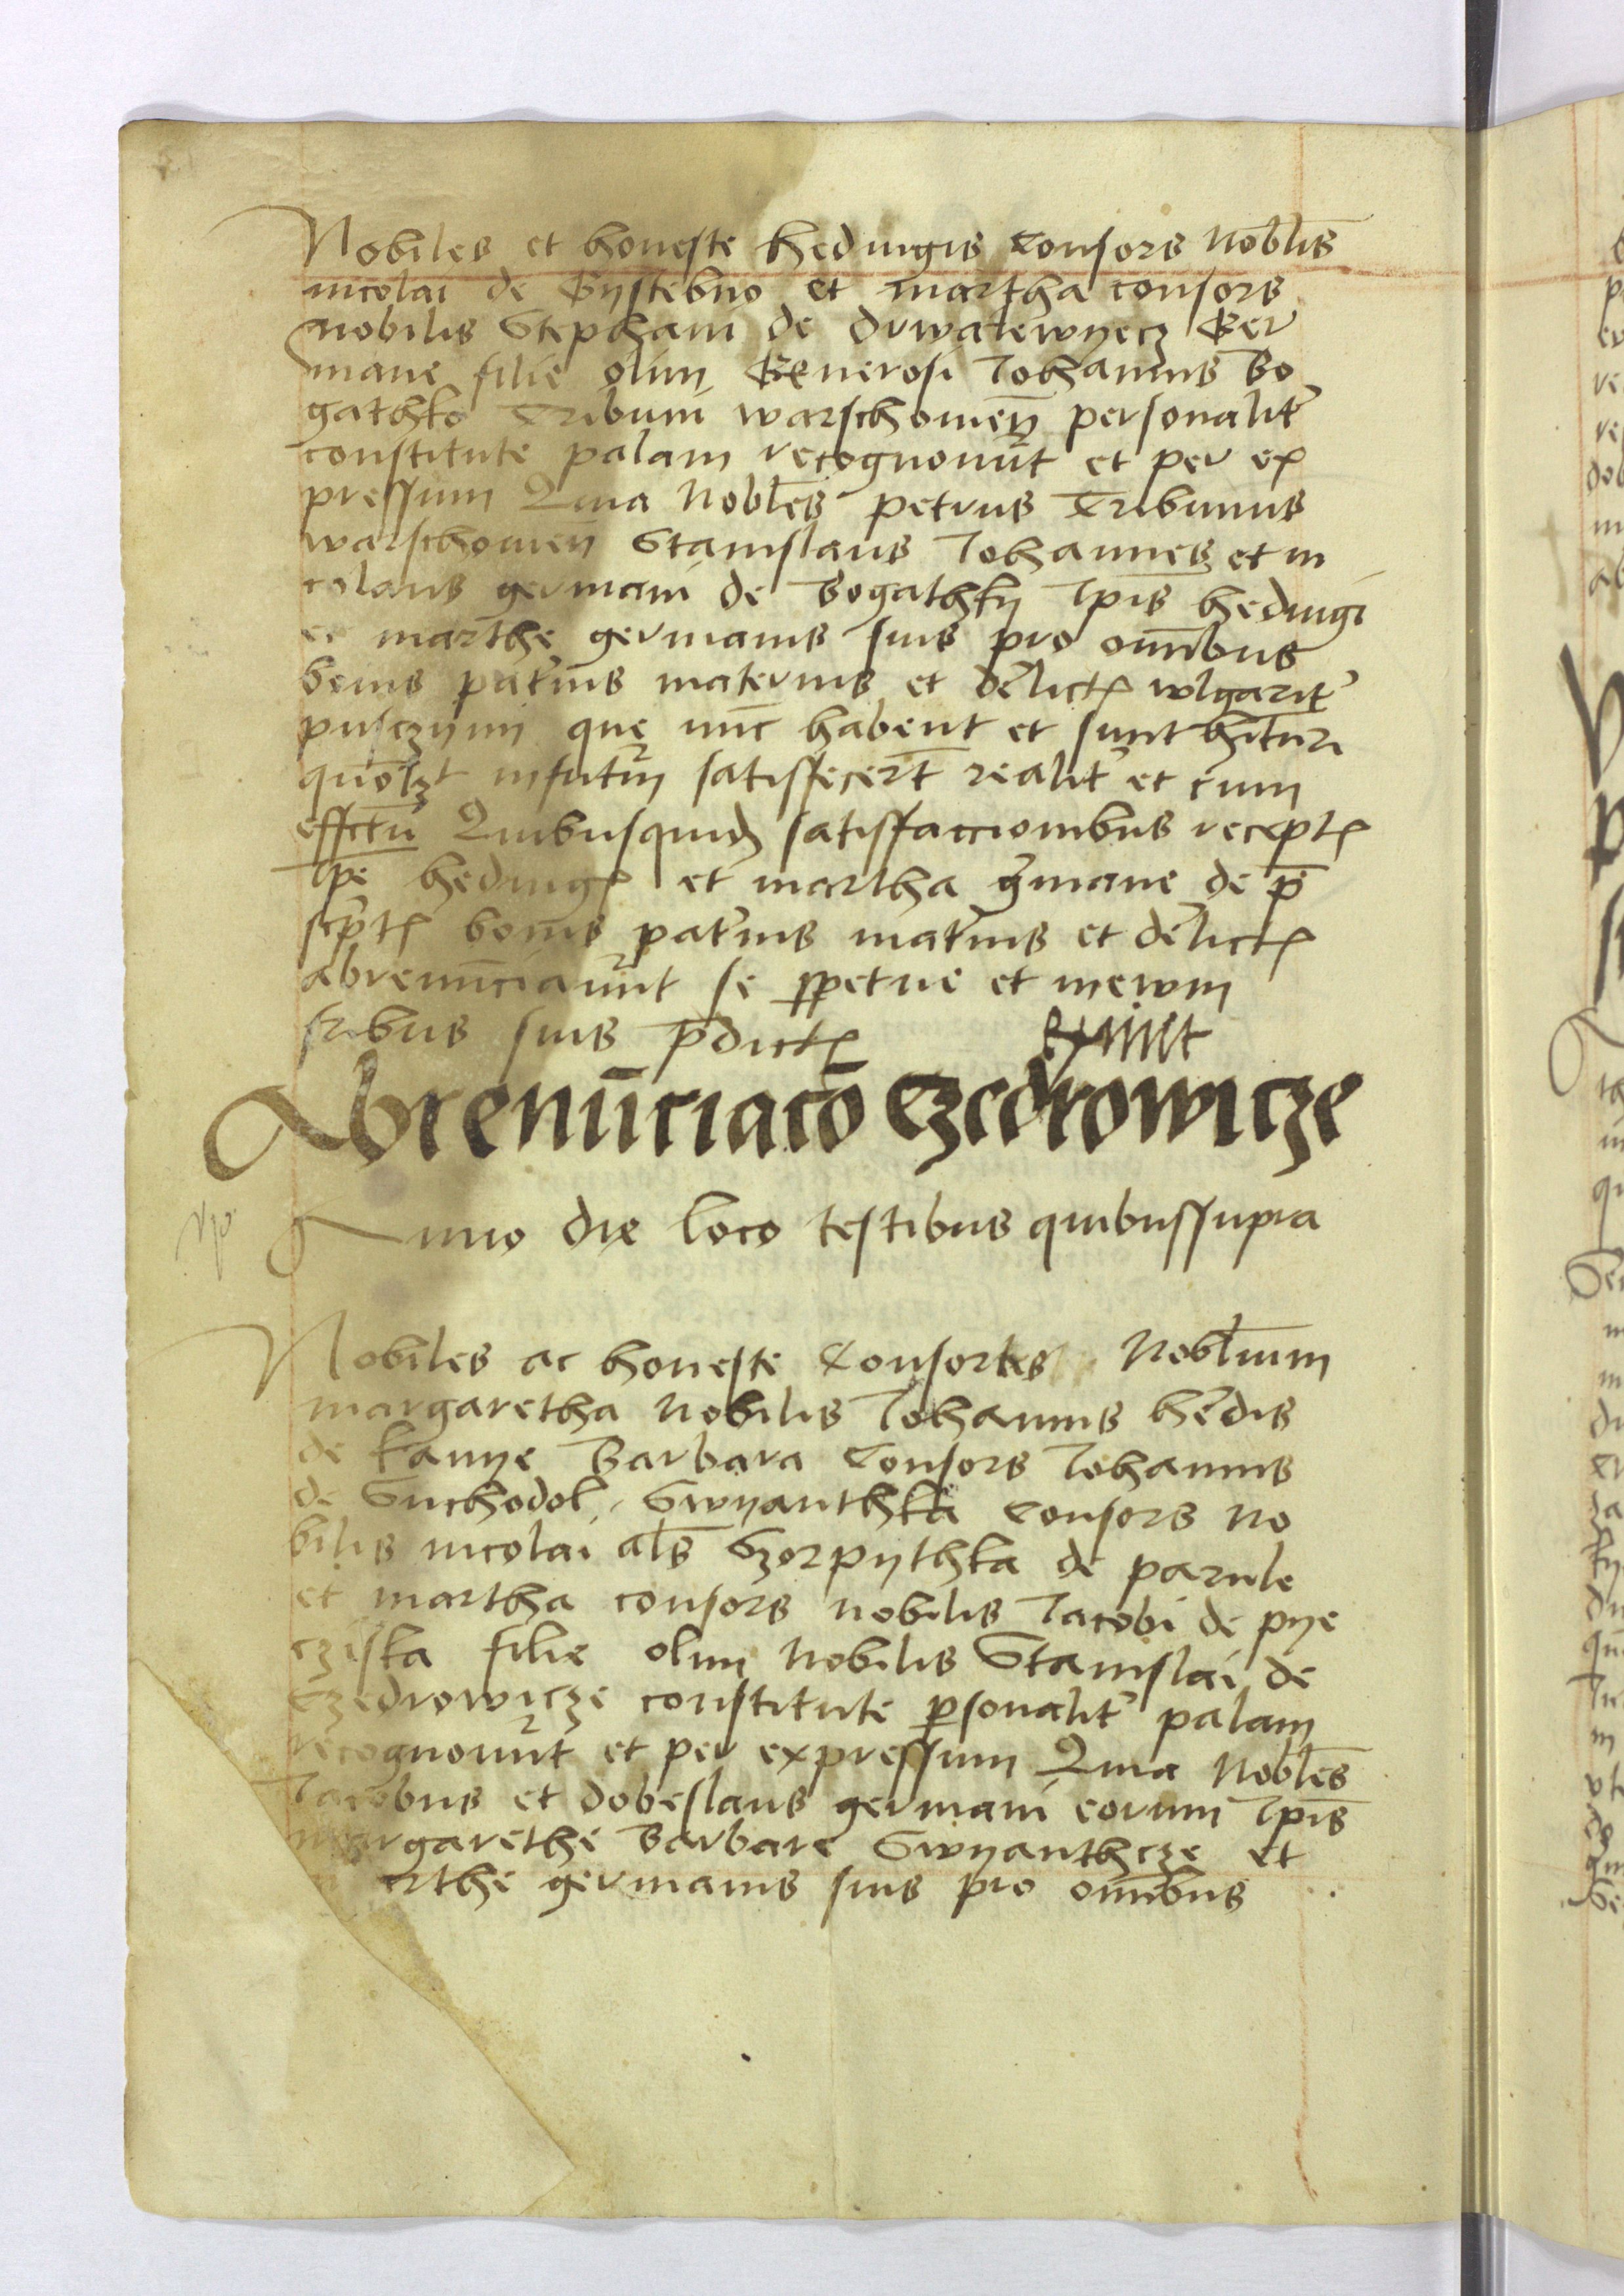 Nobiles et honeste hedwigis Consors Nobl̄is
nicolai de Gystebno et martha consors
nobilis Stephani de drwalewyecz Ger
mane filie olim Generosi Johannis Bo
gathko Tribuni warschouien̄ personalit᷑
constitute palam recognouert̄ et per ex
pressum Quia Nobl̄es petrus Tribunus
warschouien̄ Stanislaus Johannes et ni
colaus germani de Bogathky Ip̄is hedwigi
et marthe germanis suis pro om̄ibus
bonis pat᷑nis maternis et delictꝭ wlgarit᷑
pusczyny que nūc habent et sunt hīturi
quol̄ꝫt in futur̄ satisfecer̄t realit᷑ et cum
effectu Quibusquidē satisfaccionibus receptꝭ
Ip̄e hedwigꝭ et martha g᷑mane de p̄
scp̄tꝭ bonis pat᷑nis mat᷑nis et delictꝭ
abrenūciauer̄t se ꝑpetue et in ewm
fr̄ibus suis p̄dictꝭ
Abrenūciacō Czedrowicze
Anno die loco testibus quibussupra
Nobiles ac honeste Consortes Nobl̄ium
margaretha Nobilis Johannis he᷑dis
de kanye Barbara Consors Johannis
de Suchodol, Swyanthka Consors No
bilis nicolai al̄s Szorpythka de parule
et martha consors nobilis Jacobi de pye
cziska filie olim Nobilis Stanislai de
Czedrowicze constitute ꝑsonalit᷑ palam
recognouer̄t et per expressum Quia Nobl̄es
Jacobus et dobeslaus germani eorum Ip̄is
margarethe Barbare Swyanthcze et
arthe germanis suis pro om̄ibus